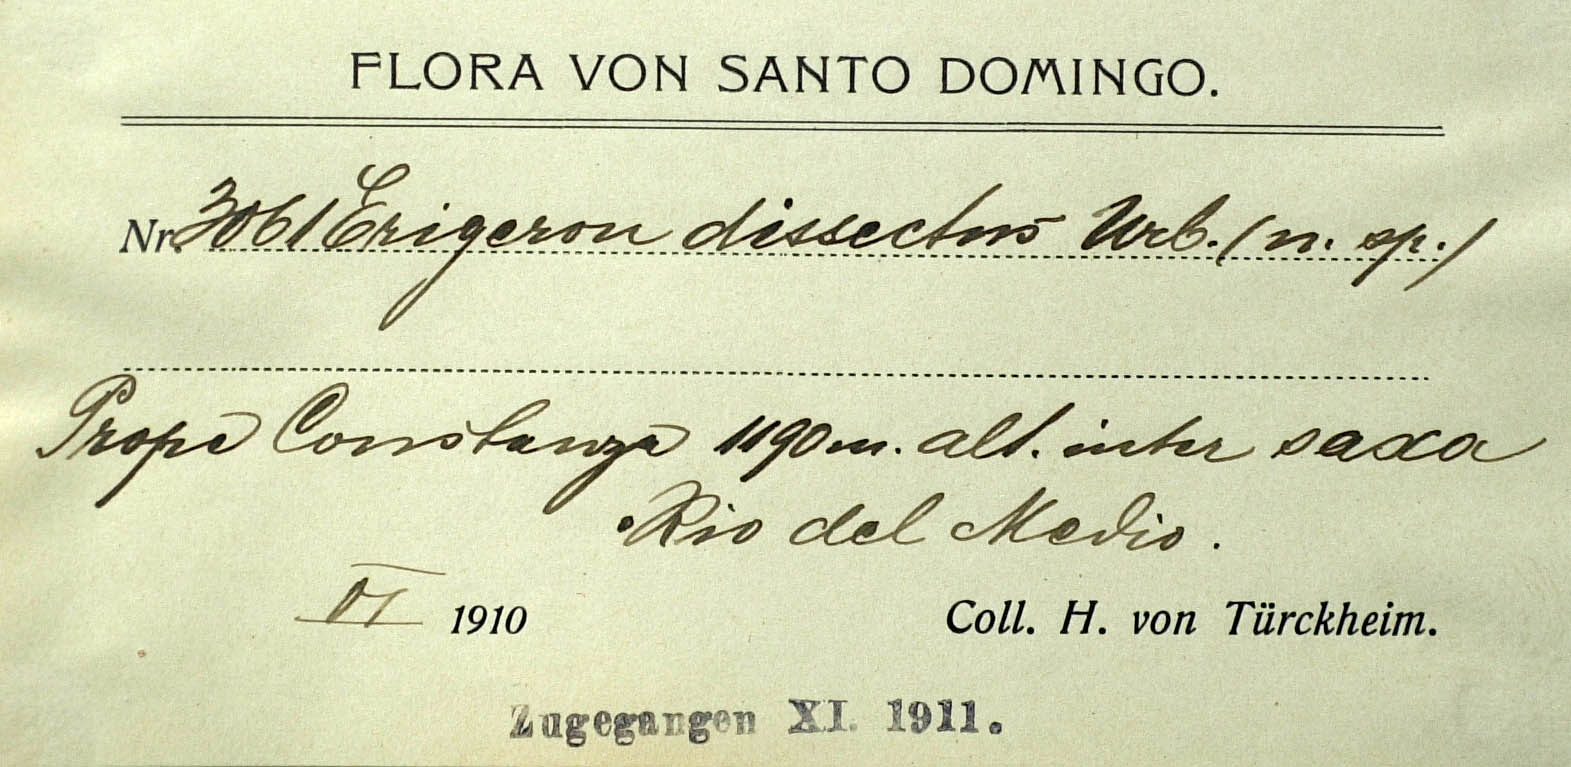 FLORA VON SANTO DOMINGO.
Nr. 3061 Erigeron dissectus Urb. (n. sp.)
Prope Constanza 1190 m. alt. inter saxa
Rio del Medio.
VI 1910 Coll. H. von Türckheim.
Zugegangen XI. 1911.